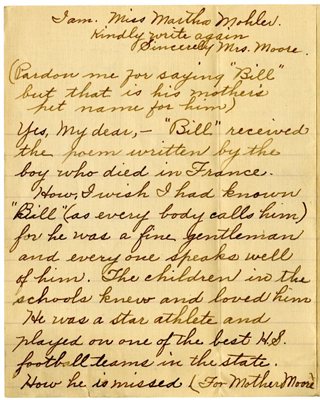 I am. Miss Martha Mohler.
Kindly write again
Sincerely Mrs. Moore.
(Pardon me for saying "Bill"
but that is his mother's
pet name for him)
Yes, My dear, - "Bill" received
the poem written by the
boy who died in France.
How, I wish I had known
"Bill" (as every body calls him)
for he was a fine gentleman
and every one speaks well
of him. The children in the
schools knew and loved him
He was a star athlete and
played on one of the best H.S.
football teams in the state.
How he is missed (For Mother Moore